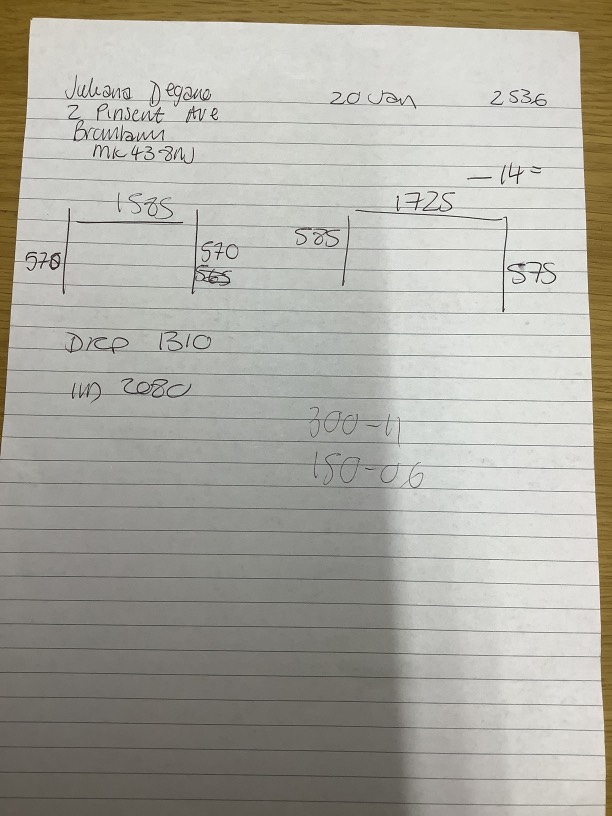 Juliana Degano 20 Jan 2536
2 Pinsent Ave
MK43 8
— 14 =
1585 1725
570 570 585
565 575
Drop 1310
2080
300-11
150-06